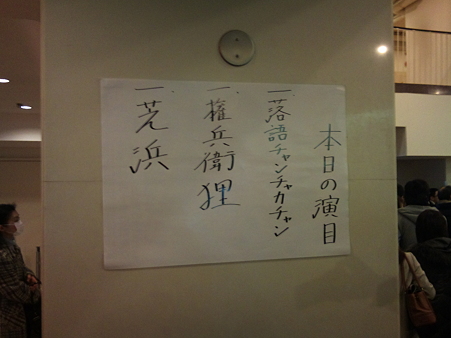 本日の演目
一.落語チャンチャカチャン
一.権兵衛狸
一.芝浜